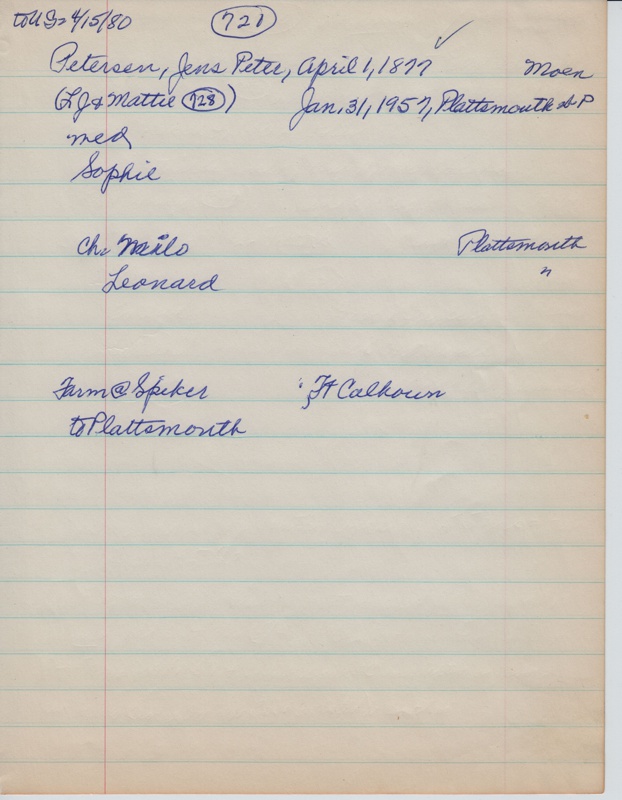 to US 4/15/80 721
Petersen, Jens Peter, April 1, 1877 Moen
(LJ & Mattie 728) Jan. 31, 1957, Plattsmouth
med
Sophie
Ch: Milo Plattsmouth
Leonard "
Farm @ Spiker Ft Calhoun
to Plattsmouth